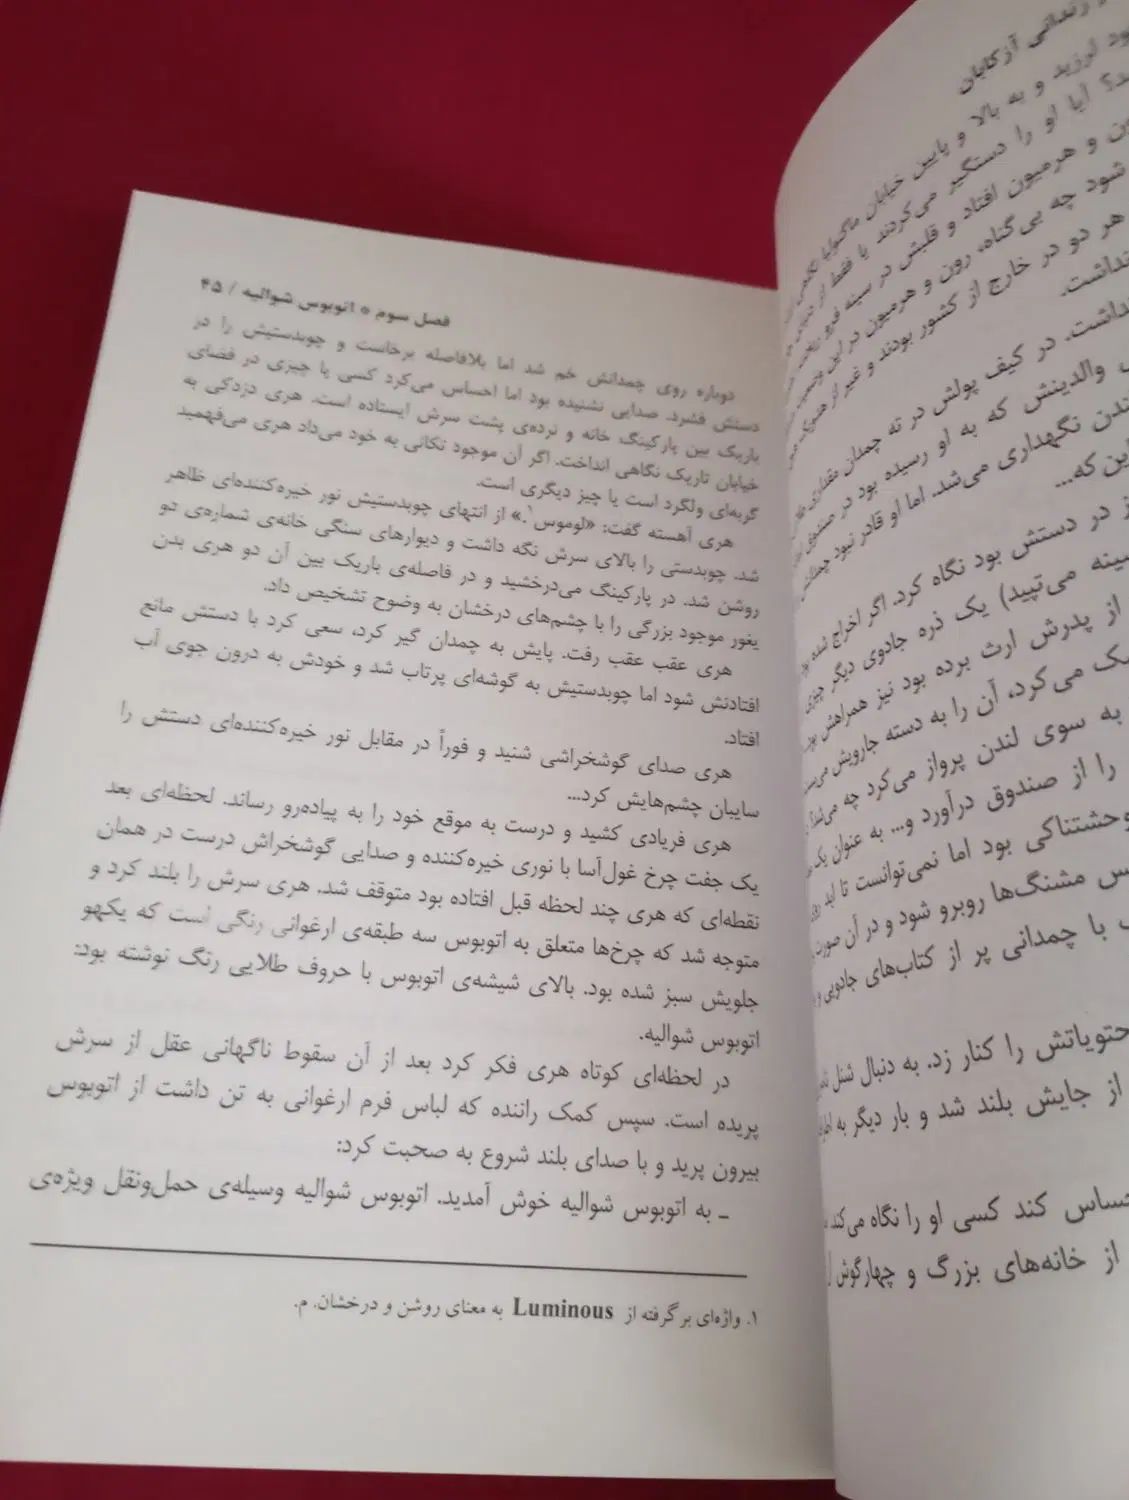 زندانی آزکابان
ود لرزید و به بالا و پایین خیابان ماگنولیا
د؟ آیا او را دستگیر می‌کردند یا فقط از
ون و هرمیون افتاد و قلبش در سینه فرو
شود چه بی‌گناه، رون و هرمیون در این
هر دو در خارج از کشور بودند و غیر از
نداشت.
نداشت. در کیف پولش در ته چمدان مقداری
والدینش که به او رسیده بود در صندوق
ندن نگهداری می‌شد. اما او قادر نبود چمدانش
این که...
ز در دستش بود نگاه کرد. اگر اخراج شده
سینه می‌تپید) یک ذره جادوی دیگر چیزی
از پدرش ارث برده بود نیز همراهش بود
ک می‌کرد، آن را به دسته جارویش
به سوی لندن پرواز می‌کرد چه می‌شد؟
را از صندوق درآورد و... به عنوان یک
وحشتناکی بود اما نمی‌توانست تا ابد روی
س مشنگ‌ها روبرو شود و در آن صورت
با چمدانی پر از کتاب‌های جادویی و
حتویاتش را کنار زد. به دنبال شنل
از جایش بلند شد و بار دیگر به
حساس کند کسی او را نگاه می‌کند
از خانه‌های بزرگ و چهارگوش
فصل سوم * اتوبوس شوالیه / ۴۵
دوباره روی چمدانش خم شد اما بلافاصله برخاست و چوبدستیش را در
دستش فشرد. صدایی نشنیده بود اما احساس می‌کرد کسی یا چیزی در فضای
باریک بین پارکینگ خانه و نرده‌ی پشت سرش ایستاده است. هری دزدکی به
خیابان تاریک نگاهی انداخت. اگر آن موجود تکانی به خود می‌داد هری می‌فهمید
گربه‌ای ولگرد است یا چیز دیگری است.
هری آهسته گفت: «لوموس۱.» از انتهای چوبدستیش نور خیره‌کننده‌ای ظاهر
شد. چوبدستی را بالای سرش نگه داشت و دیوارهای سنگی خانه‌ی شماره‌ی دو
روشن شد. در پارکینگ می‌درخشید و در فاصله‌ی باریک بین آن دو هری بدن
یغور موجود بزرگی را با چشم‌های درخشان به وضوح تشخیص داد.
هری عقب عقب رفت. پایش به چمدان گیر کرد، سعی کرد با دستش مانع
افتادنش شود اما چوبدستیش به گوشه‌ای پرتاب شد و خودش به درون جوی آب
افتاد.
هری صدای گوشخراشی شنید و فوراً در مقابل نور خیره‌کننده‌ای دستش را
سایبان چشم‌هایش کرد...
هری فریادی کشید و درست به موقع خود را به پیاده‌رو رساند. لحظه‌ای بعد
یک جفت چرخ غول‌آسا با نوری خیره‌کننده و صدایی گوشخراش درست در همان
نقطه‌ای که هری چند لحظه قبل افتاده بود متوقف شد. هری سرش را بلند کرد و
متوجه شد که چرخ‌ها متعلق به اتوبوس سه طبقه‌ی ارغوانی رنگی است که یکهو
جلویش سبز شده بود. بالای شیشه‌ی اتوبوس با حروف طلایی رنگ نوشته بود:
اتوبوس شوالیه.
در لحظه‌ای کوتاه هری فکر کرد بعد از آن سقوط ناگهانی عقل از سرش
پریده است. سپس کمک راننده که لباس فرم ارغوانی به تن داشت از اتوبوس
بیرون پرید و با صدای بلند شروع به صحبت کرد:
ـ به اتوبوس شوالیه خوش آمدید. اتوبوس شوالیه وسیله‌ی حمل‌ونقل ویژه‌ی
۱. واژه‌ای برگرفته از Luminous به معنای روشن و درخشان. م.